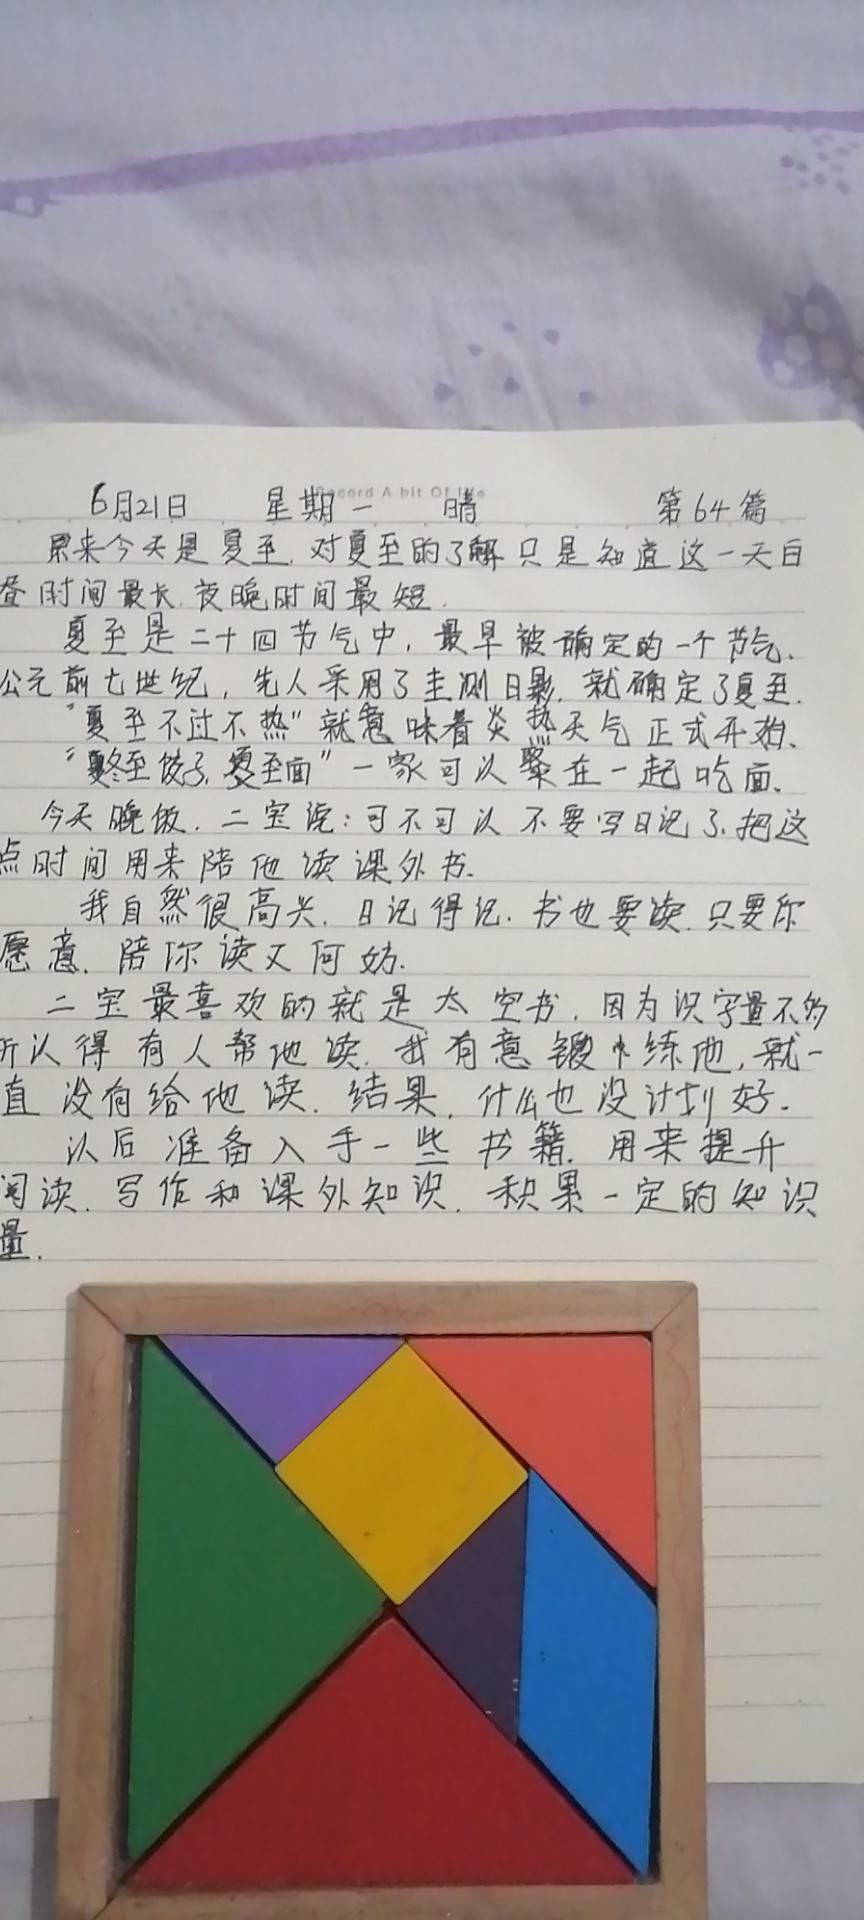 Record A bit Of life
6月21日 星期一 晴 第64篇
原来今天是夏至.对夏至的了解只是知道这一天白
昼时间最长.夜晚时间最短.
夏至是二十四节气中,最早被确定的一个节气.
公元前七世纪,先人采用了圭测日影.就确定了夏至.
"夏至不过不热"就意味着炎热天气正式开始.
"冬至饺子.夏至面"一家可以聚在一起吃面.
今天晚饭.二宝说:可不可以不要写日记了.把这
点时间用来陪他读课外书.
我自然很高兴.日记得记.书也要读.只要你
愿意.陪你读又何妨.
二宝最喜欢的就是太空书.因为识字量不够
所以得有人帮他读.我有意锻练他,就一
直没有给他读.结果.什么也没计划好.
以后准备入手一些书籍.用来提升
阅读.写作和课外知识.积累一定的知识
量.